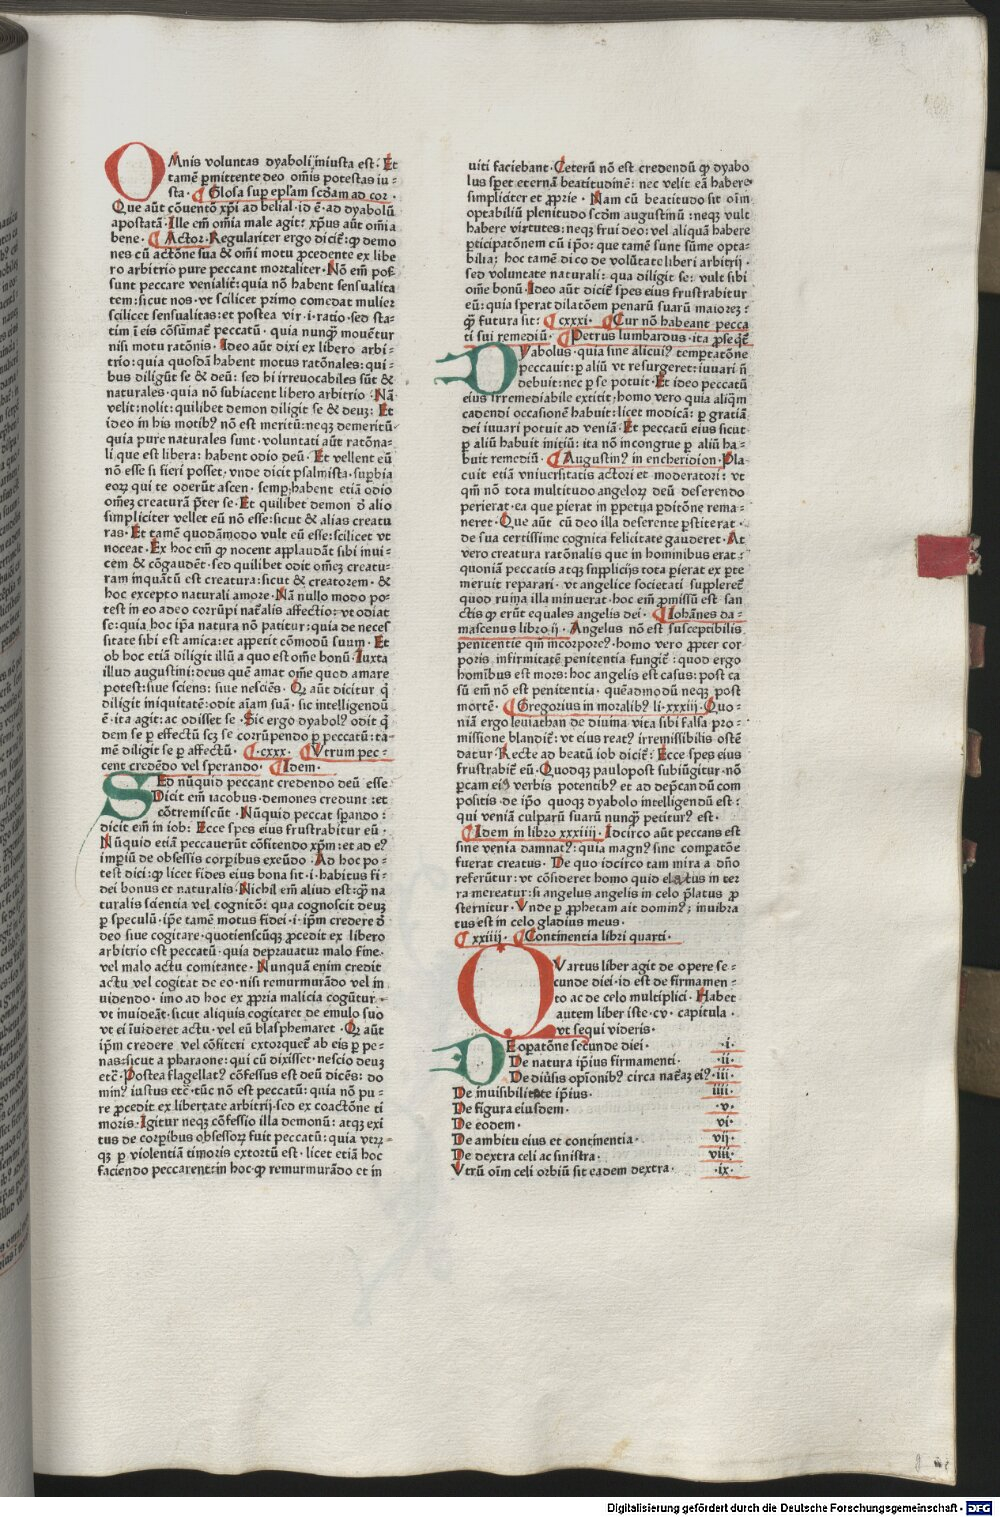 OMnis voluntas dyaboli iniusta est. Et
tamē ꝑmittente deo om̄is potestas iu-
sta. Glosa suꝑ epl'am scd̄am ad cor.
Que aūt cōuentō xp̄i ad belial. id ē. ad dyabolū
apostatā. Ille em̄ om̄ia male agit: xp̄us aūt om̄ia
bene. Actor. Regulariter ergo dicit᷑: ꝙ demo
nes cū actōne sua & om̄i motu ꝓcedente ex libe
ro arbitrio pure peccant mortaliter. Nō em̄ pos̄
sunt peccare venialit᷑: quia nō habent sensualita
tem: sicut nos. vt scilicet primo comedat mulier
scilicet sensualitas: et postea vir. i. ratio. sed sta-
tim ī eis cōsūmat᷑ peccatū. quia nunꝙ̄ mouētur
nisi motu ratōnis. Ideo aūt dixi ex libero arbi-
trio: quia quosdā habent motus ratōnales: qui-
bus diligūt se & deū: sed hi irreuocabiles sūt &
naturales. quia nō subiacent libero arbitrio. Nā
velit: nolit: quilibet demon diligit se & deuꝫ: Et
ideo in his motibꝰ nō est meritū: neqꝫ demeritū.
quia pure naturales sunt. voluntati aūt ratōna-
li. que est libera: habent odio deū. Et vellent eū
nō esse si fieri posset. vnde dicit psalmista. suꝑbia
eorꝝ qui te oderūt ascen. semꝑ. habent etiā odio
om̄eꝫ creaturā p̄ter se. Et quilibet demon d̄ alio
simpliciter vellet eū nō esse: sicut & alias creatu
ras. Et tamē quodāmodo vult eū esse: scilicet vt
noceat. Ex hoc em̄ ꝙ nocent applaudāt sibi inui-
cem & cōgaudēt. sed quilibet odit om̄eꝫ creatu-
ram inquātū est creatura: sicut & creatorem. &
hoc excepto naturali amore. Nā nullo modo po-
test in eo adeo corrūpi nat᷑alis affectio: vt odiat
se: quia hoc ip̄a natura nō patitur: quia de neces
sitate sibi est amica: et appetit cōmodū suum. Et
ob hoc etiā diligit illū a quo est om̄e bonū. Iuxta
illud augustini: deus quē amat om̄e quod amare
potest: siue sciens: siue nesciēs. Qꝫ aūt dicitur ꝙ
diligit iniquitatē: odit aīam suā. sic intelligendū
ē. ita agit: ac odisset se. Sic ergo dyabolꝰ odit ꝙ
dem se ꝑ effectū scꝫ se corrūpendo ꝑ peccatū: ta-
mē diligit se ꝑ affectū. .cxxx. Vtrum pec-
cent credēdo vel sperando. Idem.
SEd nūquid peccant credendo deū esse
Dicit em̄ iacobus. demones credunt: et
cōtremiscūt. Nūquid peccat sꝑando:
dicit em̄ in iob: Ecce spes eius frustrabitur eū.
Nūquid etiā peccauerūt cōfitendo xp̄m: et ad eꝰ
imꝑiū de obsessis corꝑibus exeūdo. Ad hoc po-
test dici: ꝙ licet fides eius bona sit. i. habitus fi-
dei bonus et naturalis. Nichil em̄ aliud est: ꝙ̄ na
turalis scientia vel cognitō: qua cognoscit deuꝫ
ꝑ speculū. ip̄e tamē motus fidei. i. ip̄m credere d̄
deo siue cogitare. quotienscūqꝫ ꝓcedit ex libero
arbitrio est peccatū. quia deprauatur malo fine.
vel malo actu comitante. Nunquā enim credit
actu vel cogitat de eo. nisi remurmurādo vel in
uidendo. imo ad hoc ex ꝓpria malicia cogūtur.
vt inuideāt. sicut aliquis cogitaret de emulo suo
vt ei īuideret actu. vel eū blasphemaret. Qꝫ aūt
ip̄m credere vel cōfiteri extorquet᷑ ab eis ꝑ pe-
nas: sicut a pharaone: qui cū dixisset. nescio deuꝫ
etc̄. Postea flagellatꝰ cōfessus est deū dicēs: do
minꝰ iustus etc̄. tūc nō est peccatū: quia nō pu-
re ꝓcedit ex libertate arbitrij. sed ex coactōne ti
moris. Igitur neqꝫ cōfessio illa demonū: atqꝫ exi
tus de corꝑibus obsessorꝝ fuit peccatū: quia vtrꝝ-
qꝫ ꝑ violentiā timoris extortū est. licet etiā hoc
faciendo peccarent: in hoc ꝙ remurmurādo et in
uiti faciebant. Ceterū nō est credendū ꝙ dyabo
lus sꝑet eternā beatitudinē: nec velit eā habere
simpliciter et ꝓprie. Nam cū beatitudo sit oīm
optabiliū plenitudo scd̄m augustinū: neqꝫ vult
habere virtutes: neqꝫ frui deo: vel aliquā habere
ꝑticipatōnem cū ip̄o: que tamē sunt sūme opta-
bilia; hoc tamē dico de volūtate liberi arbitrij.
sed voluntate naturali: qua diligit se: vult sibi
om̄e bonū. Ideo aūt dicit᷑ spes eius frustrabitur
eū: quia sperat dilatōem penarū suarū maioreꝫ:
ꝙ̄ futura sit: cxxxi. Cur nō habeant pecca
ti sui remediū. Petrus lumbardus. ita ꝓseqt᷑
DYabolus. quia sine alicuiꝰ temptatōne
peccauit: ꝑ aliū vt resurgeret: iuuari n̄
debuit: nec ꝑ se potuit. Et ideo peccatū
eius irremediabile extitit. homo vero quia aliꝙ̄m
cadendi occasionē habuit: licet modicā: ꝑ gratiā
dei iuuari potuit ad veniā. Et peccatū eius sicut
ꝑ aliū habuit initiū: ita nō incongrue ꝑ aliū ha-
buit remediū. Augustinꝰ in encheridion. Pla
cuit etiā vniuersitatis actori et moderatori: vt
qm̄ nō tota multitudo angelorꝝ deū deserendo
perierat. ea que ꝑierat in ꝑpetua ꝑditōne rema-
neret. Que aūt cū deo illa deserente ꝑstiterat.
de sua certissime cognita felicitate gauderet. At
vero creatura ratōnalis que in hominibus erat:
quoniā peccatis atqꝫ supplicijs tota ꝑierat ex ꝑte
meruit reparari. vt angelice societati suppleret᷑
quod ruina illa minuerat. hoc em̄ ꝓmissū est san
ctis ꝙ erūt equales angelis dei. Iohānes da-
mascenus libro ij. Angelus nō est susceptibilis
penitentie qm̄ incorporeꝰ. homo vero ꝓpter cor-
poris infirmitatē penitentia fungit᷑: quod ergo
homībus est mors: hoc angelis est casus: post ca
sū em̄ nō est penitentia. quēadmodū neqꝫ post
mortē. Gregorius in moralibꝰ li. xxxiij. Quo-
niā ergo leuiathan de diuina vita sibi falsa pro-
missione blandit᷑: vt eius reatꝰ irremissibilis ostē
datur. Recte ad beatū iob dicit᷑: Ecce spes eius
frustrabit᷑ eū. Quodqꝫ paulopost subiūgitur. nō
ꝑcam eiꝰ verbis potentibꝰ et ad dep̄candū com
positis. de ip̄o quoqꝫ dyabolo intelligendū est:
qui veniā culparū suarū nunꝙ̄ petiturꝰ est.
Idem in libro xxxiiij. Idcirco aūt peccans est
sine venia damnatꝰ: quia magnꝰ sine comꝑatōe
fuerat creatus. De quo idcirco tam mira a dn̄o
referūtur: vt cōsideret homo quid elatus in ter
ra mereatur: si angelus angelis in celo p̄latus ꝓ
sternitur. Vnde ꝑ ꝓphetam ait dominꝰ; inuibra
tus est in celo gladius meus.
xxiiij. Continentia libri quarti.
QVartus liber agit de opere se-
cunde diei. id est de firmamen-
to ac de celo multiplici. Habet
autem liber iste. cv. capitula.
vt sequi videris.
DE opatōne secūnde diei. .i.
De natura ip̄ius firmamenti. .ii.
De diu̓sis opīonibꝰ circa nat᷑aꝫ eiꝰ. .iii.
De inuisibilitate ip̄ius. iiii.
De figura eiusdem. .v.
De eodem. vi.
De ambitu eius et continentia. vij.
De dextra celi ac sinistra. viii.
Vtrū oīm celi orbiū sit eadem dextra. .ix.
Digitalisierung gefördert durch die Deutsche Forschungsgemeinschaft - DFG